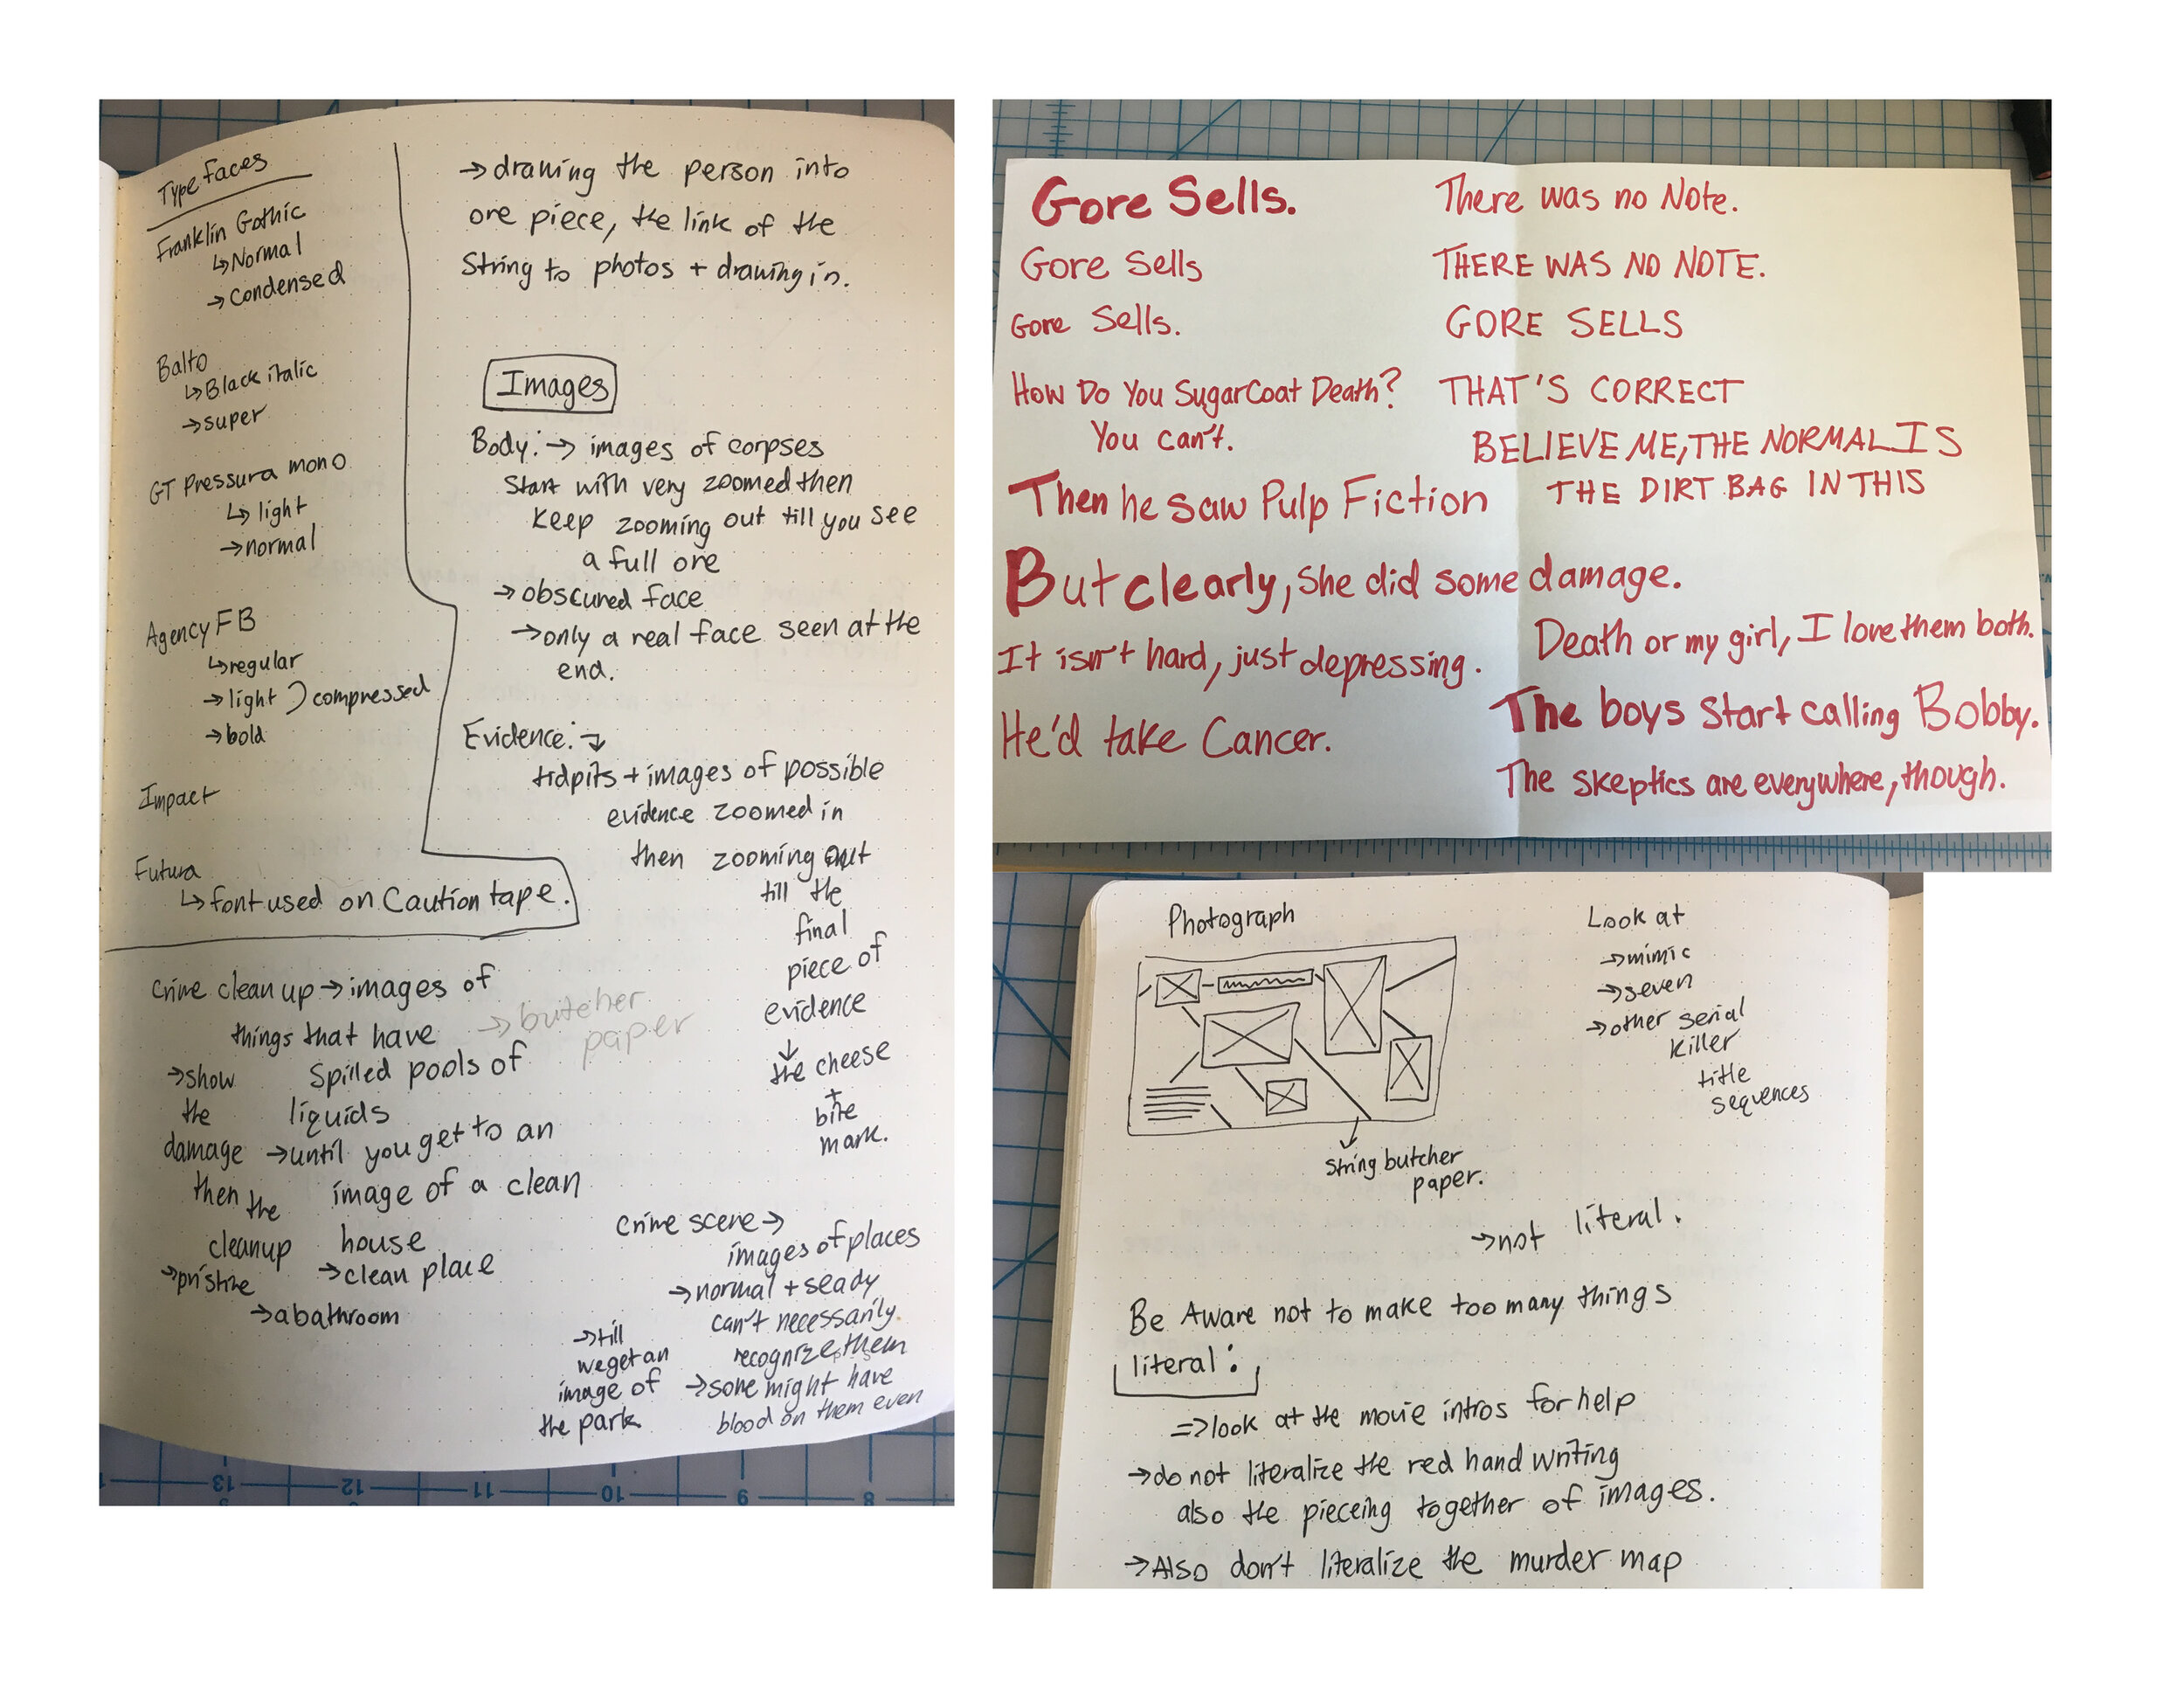 Type faces
Franklin Gothic
↳Normal
→Condensed
Balto
↳Black italic
→super
GT Pressura mono
↳light
→normal
Agency FB
↳regular
→light ) compressed
→bold
Impact
Futura
↳font used on Caution tape.
→drawing the person into
one piece, the link of the
String to photos + drawing in.
Images
Body: → images of corpses
Start with very zoomed then
Keep zooming out till you see
a full one
→obscured face
→only a real face seen at the
end.
Evidence: ↴
tidpits + images of possible
evidence zoomed in
then zooming out
till the
final
piece of
evidence
↓
the cheese
+
bite
mark.
Crime clean up → images of
things that have
Spilled pools of
liquids
→until you get to an
image of a clean
house
→clean place
→a bathroom
→butcher
paper
→show
the
damage
then the
cleanup
→pristine
Crime scene →
images of places
→normal + seady
can't necessarily
recognize them
→some might have
blood on them even
→till
we get an
image of
the park
Gore Sells.
Gore Sells
Gore Sells.
How Do You SugarCoat Death?
You can't.
Then he saw Pulp Fiction
There was no Note.
THERE WAS NO NOTE.
GORE SELLS
THAT'S CORRECT
BELIEVE ME, THE NORMAL IS
THE DIRT BAG IN THIS
But clearly, she did some damage.
It isn't hard, just depressing.
Death or my girl, I love them both.
He'd take Cancer.
The boys start calling Bobby.
The skeptics are everywhere, though.
Photograph
String butcher
paper.
Look at
→mimic
→seven
→other serial
killer
title
sequences
→not literal.
Be Aware not to make too many things
literal:
=>look at the movie intros for help
→do not literalize the red hand writing
also the pieceing together of images.
→Also don't literalize the murder map
13 12 11 10 9 8